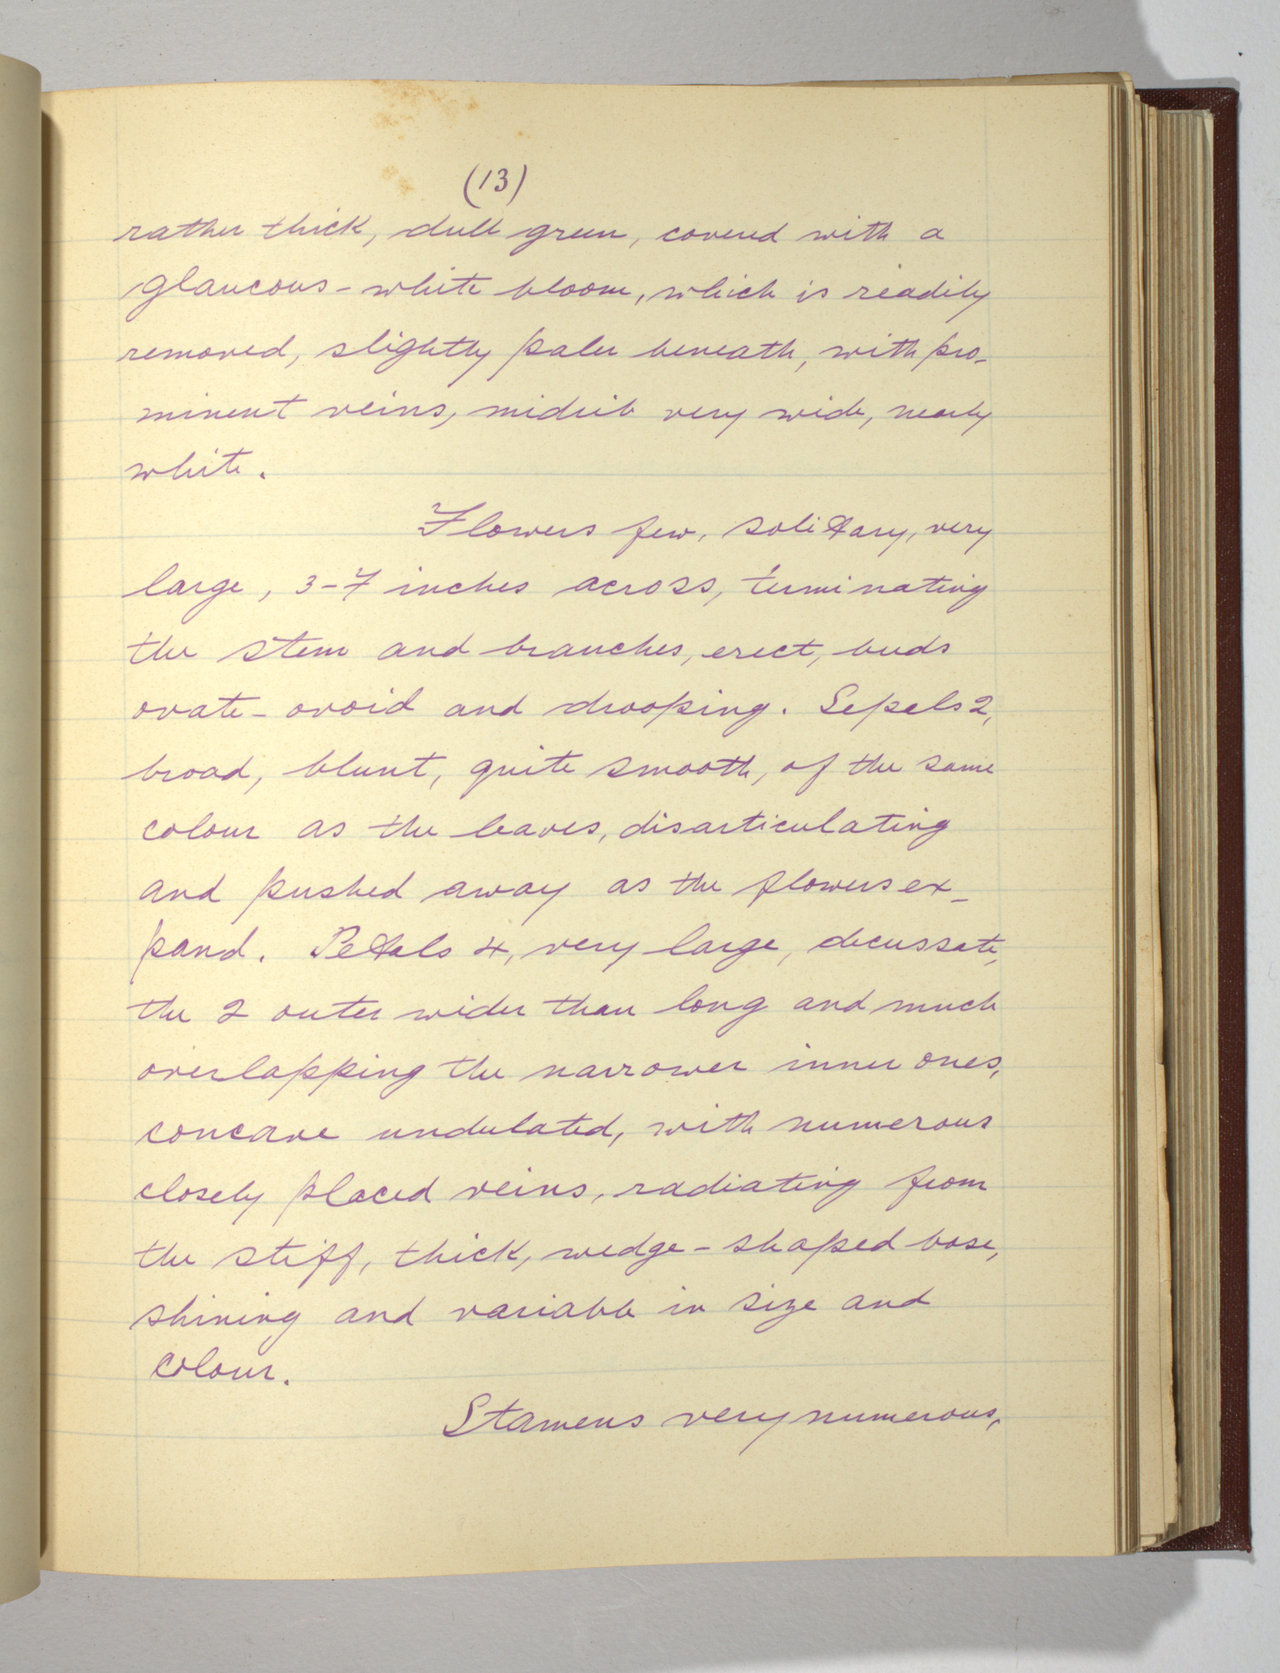 (13)
rather thick, dull green, covered with a
glaucous-white bloom, which is readily
removed, slightly paler beneath, with pro-
minent veins, midrib very wide, nearly
white.
Flowers few, solitary, very
large, 3-7 inches across, terminating
the stem and branches, erect, buds
ovate-ovoid and drooping. Sepals 2,
broad, blunt, quite smooth, of the same
colour as the leaves, disarticulating
and pushed away as the flowers ex-
pand. Petals 4, very large, decussate,
the 2 outer wider than long and much
overlapping the narrower inner ones,
concave undulated, with numerous
closely placed veins, radiating from
the stiff, thick, wedge-shaped base,
shining and variable in size and
colour.
Stamens very numerous,